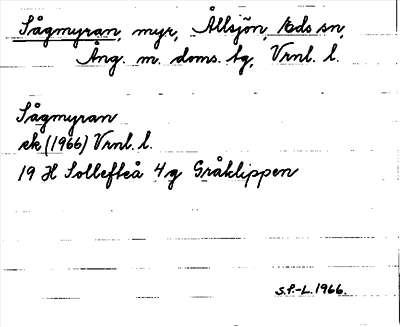 Sågmyran, myr, Ållsjön, Eds sn,
Ång. m. doms. tg, Vrnl. l.
Sågmyran
ek (1966) Vrnl. l.
19 H Sollefteå 4 g Gråklippen
S.F.-L. 1966.